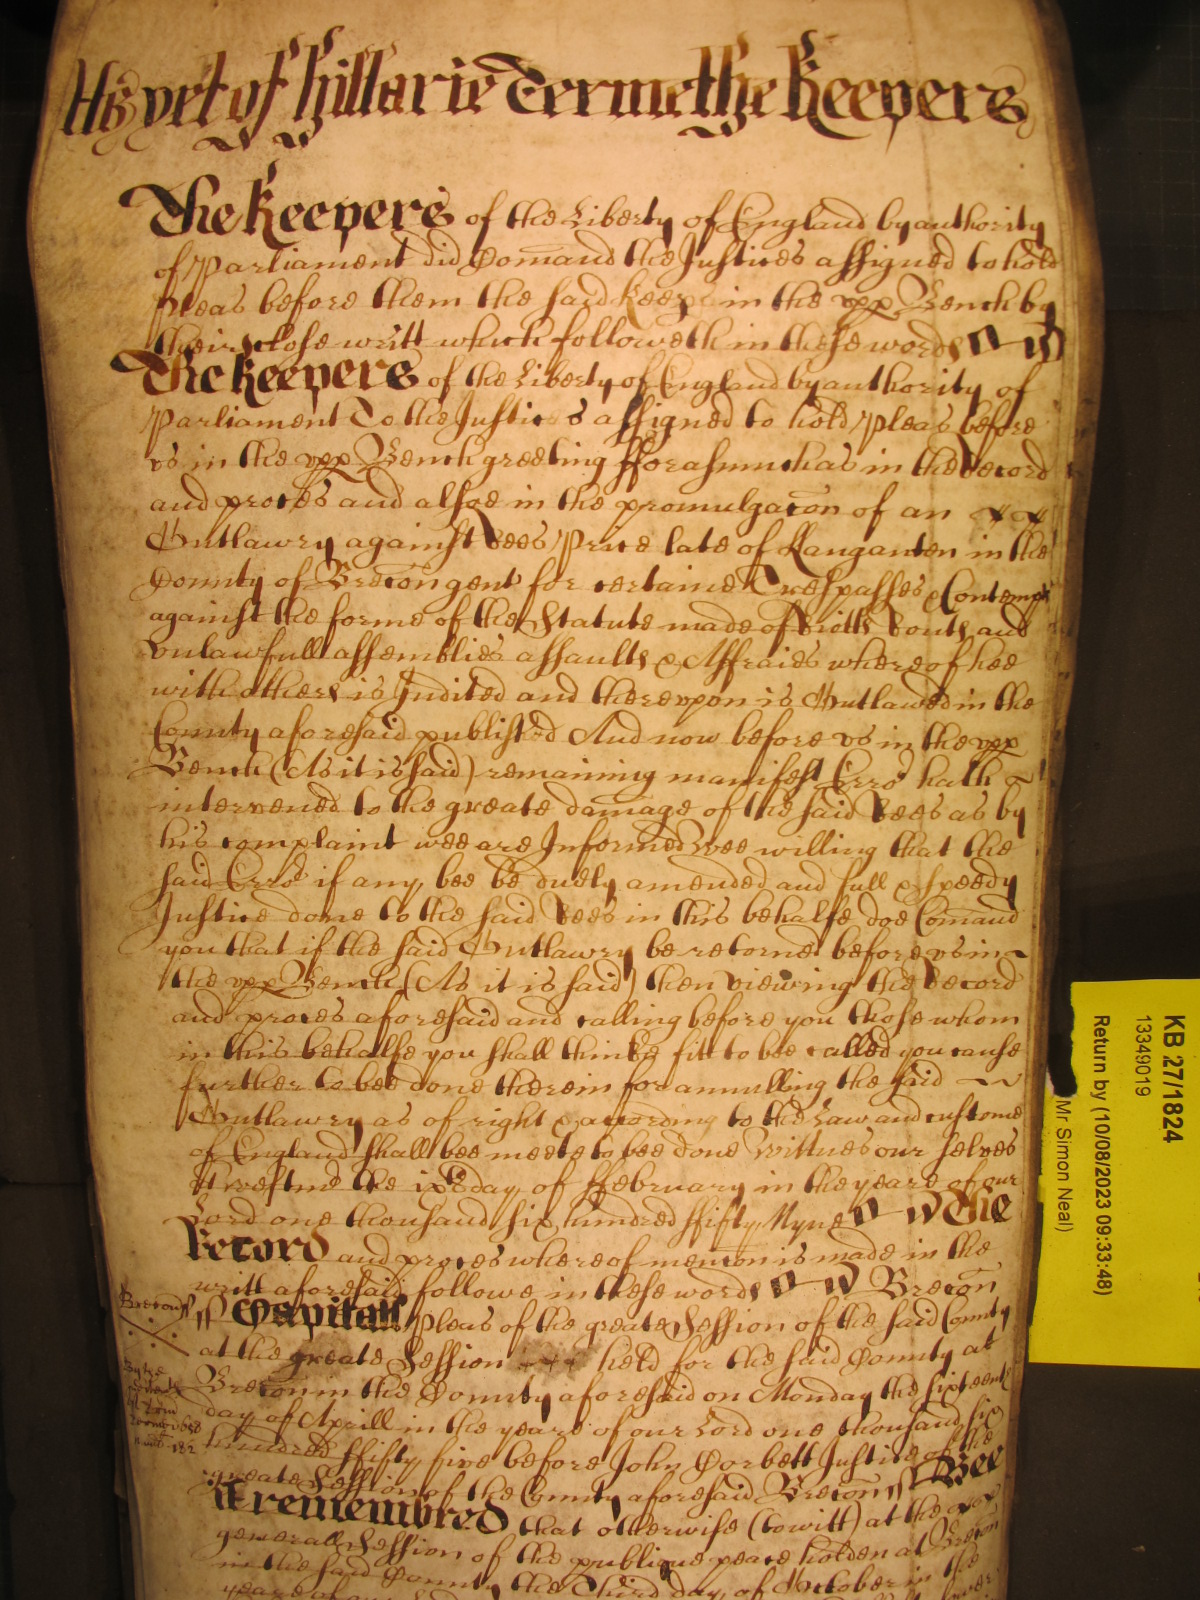 His yet of Hillarie Terme the Keepers
The Keepers of the Liberty of England by authority
of Parliament did Com̄aund the Justices assigned to hold
Pleas before them the said Keep in the vpp Bench by
their close writt which followeth in these words
The Keepers of the Liberty of England by authority of
Parliament To the Justices assigned to hold Pleas before
vs in the vpp Bench greeting fforasmuch as in the Record
and proces and alsoe in the promulgacōn of an
Outlawry against Rees Price late of Llanganten in the
County of Brecon gent for certaine Trespasses & Contempt
against the forme of the Statute made of Riotts Routs and
vnlawfull assemblies assaults & Affraies whereof hee
with others is Indited and therevpon is Outlawed in the
County aforesaid published And now before vs in the vpp
Bench (As it is said) remaining manifest Erro hath
intervened to the greate damage of the said Rees as by
his complaint wee are Informed Wee willing that the
said Erro if any bee be duely amended and full & speedy
Justice done to the said Rees in this behalfe doe Com̄aund
you that if the said Outlawry be retorned before vs in
the vpp Bench (As it is said) then viewing the Record
and proces aforesaid and calling before you those whom
in this behalfe you shall thinke fitt to bee called you cause
further to bee done therein for annulling the said
Outlawry as of right & according to the Law and custome
of England shall bee meete to bee done Wittnes our selves
at Westm̄ the ixth day of ffebruary in the yeare of our
Lord one thousand six hundred ffifty Nyne The
Record and proces whereof mencōn is made in the
writt aforesaid followe in these words Brecon
Brecon ss Capitall Pleas of the greate Session of the said County
at the greate Session held for the said County at
Brecon in the County aforesaid on Monday the sixteenth
day of Aprill in the yeare of our Lord one thousand six
hundred ffifty five before John Corbett Justice of the
greate Session of the County aforesaid Brecon ss Bee
it remembred that otherwise (to witt) at the
generall Session of the publique peace holden at Brecon
in the said County the Third day of October in the
yeare of
KB 27/1824
13349019
Return by (10/08/2023 09:33:48)
Mr Simon Neal)